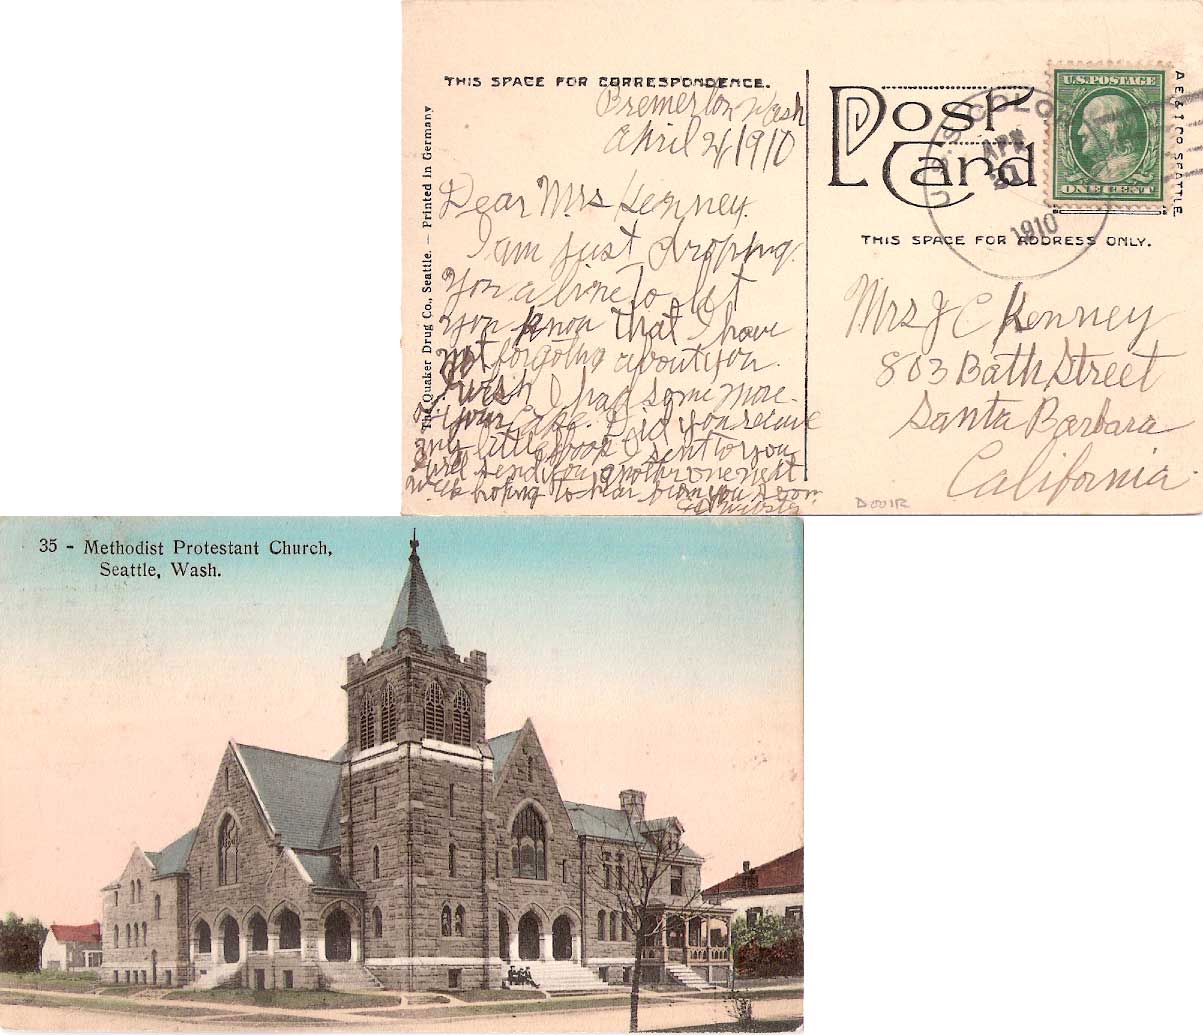 THIS SPACE FOR CORRESPONDENCE.
Bremerton Wash
April 21/1910
Dear Mrs Kenney.
I am just droping
you a line to let
you know that I have
not forgotting about you.
I wish I had some more
of your Cake. Did you receive
any little book I sent to you
will send you another one next
week hoping to hear from you soon
Webster
The Quaker Drug Co., Seattle. – Printed in Germany
Post
Card
U.S. POSTAGE
ONE CENT
U.S.S. COLO
APR
21
1910
A E & I CO SEATTLE
THIS SPACE FOR ADDRESS ONLY.
Mrs J C Kenney
803 Bath Street
Santa Barbara
California
D001R
35 - Methodist Protestant Church,
Seattle, Wash.